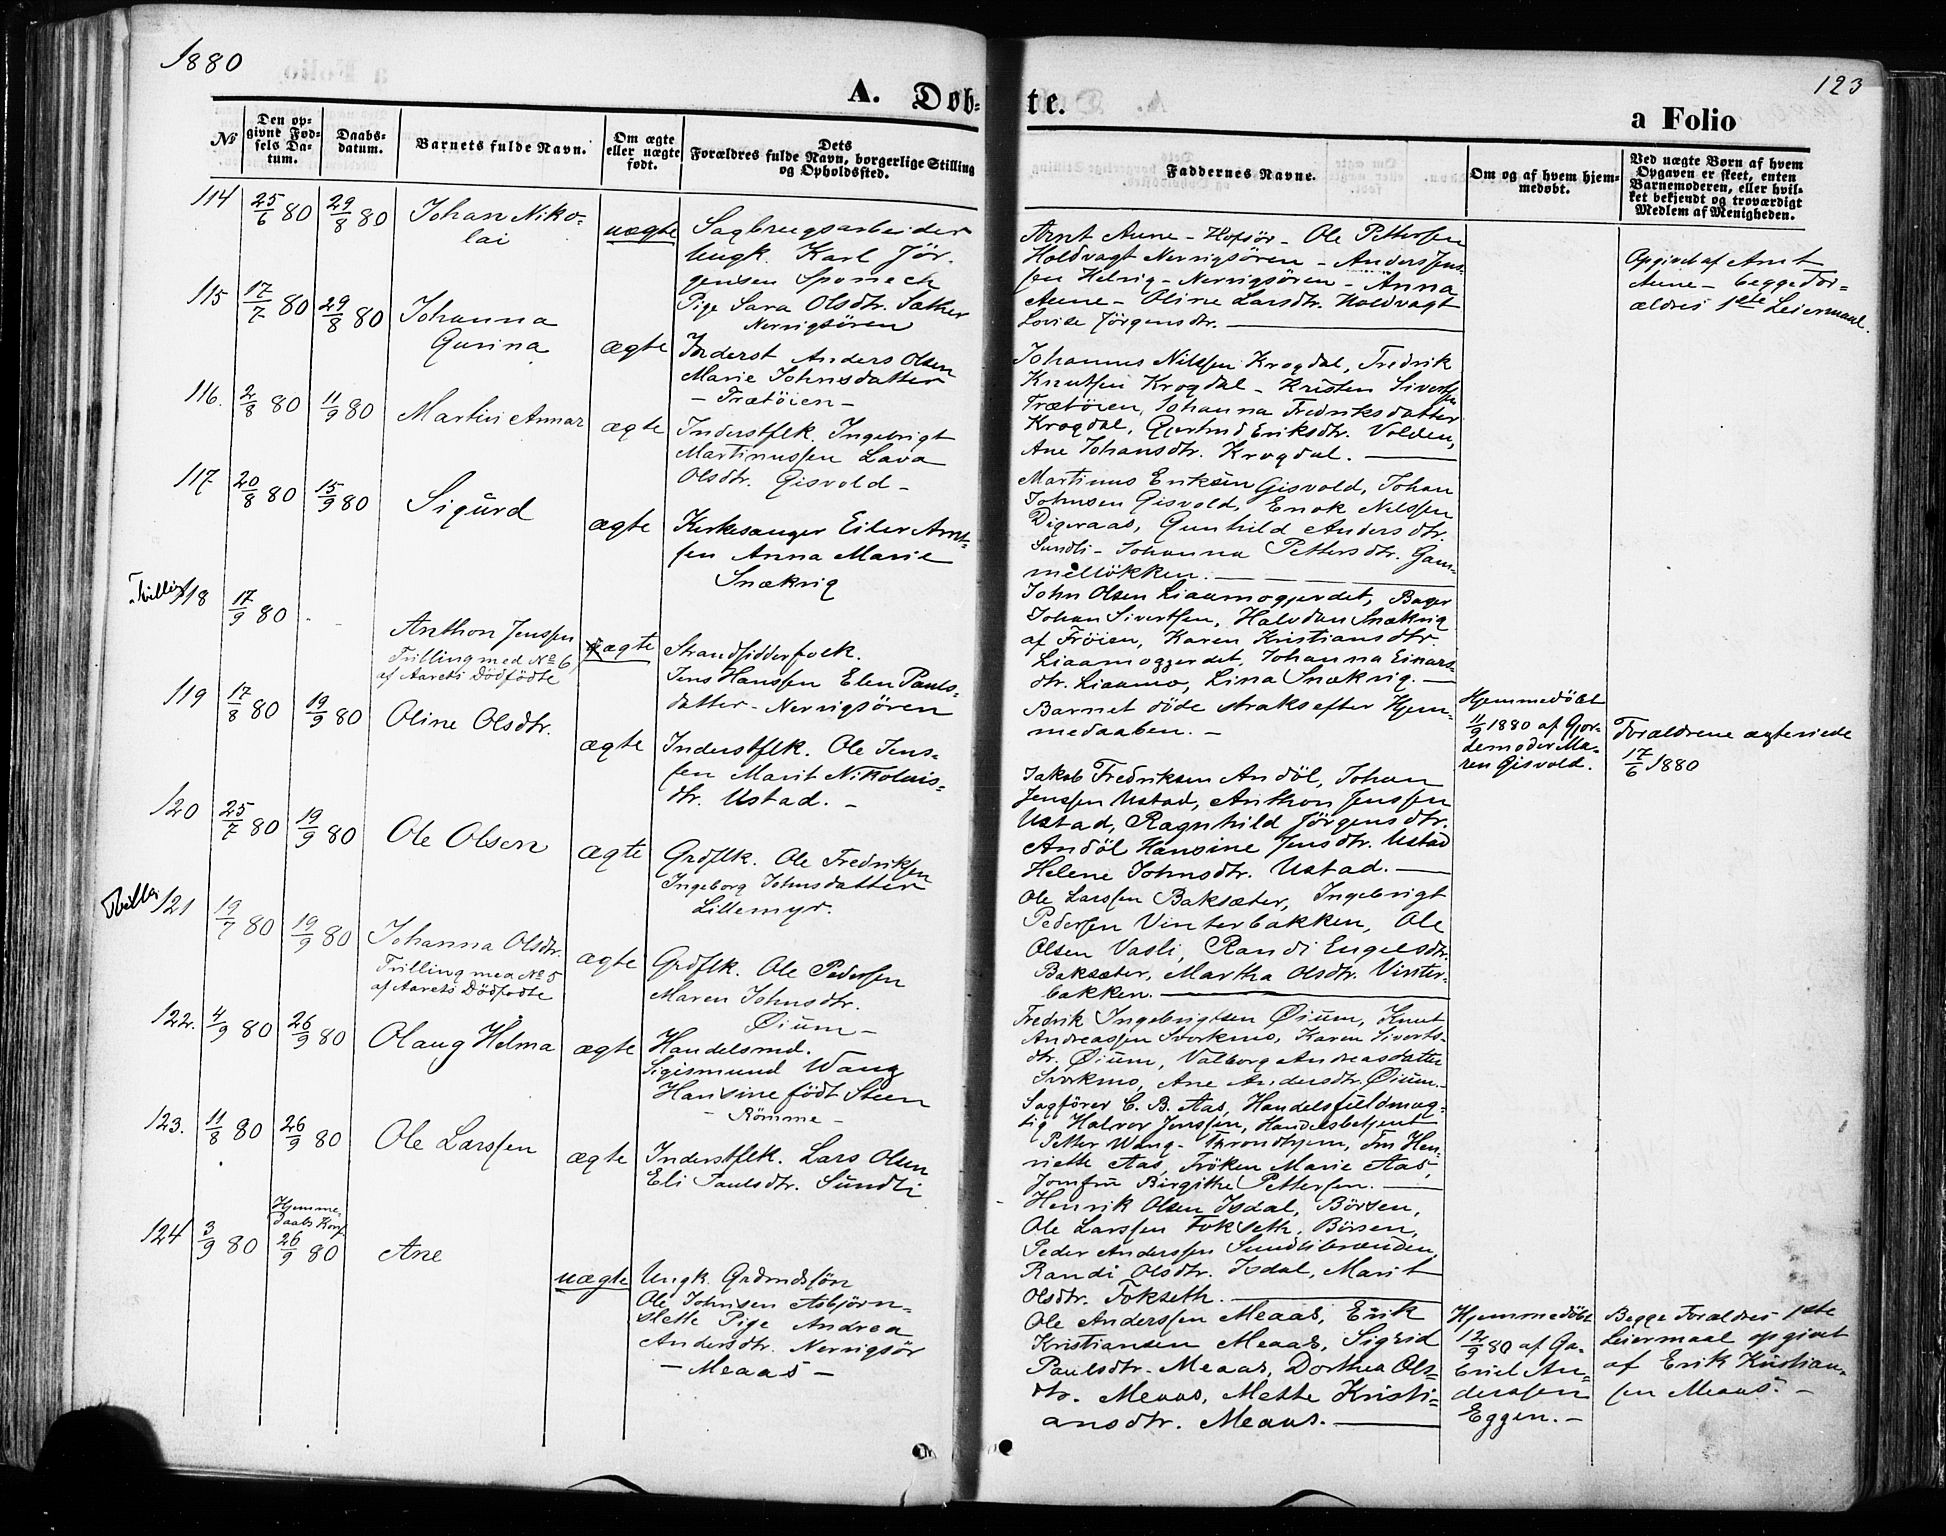 1880
A. Døb-
te.
a Folio
123
№
Den op-
givne Fød-
sels Da-
tum.
Daabs-
datum.
Barnets fulde Navn.
Om ægte
eller uægte
født.
Dets
Forældres fulde Navn, borgerlige Stilling
og Opholdssted.
Faddernes Navne.
Om og af hvem hjem-
medøbt.
Ved uægte Børn af hvem
Opgaven er skeet, enten
Barnemoderen, eller hvil-
ket bekjendt og troværdigt
Medlem af Menigheden.
114
25/6 80
29/8 80
Johan Niko-
lai
uægte
Sagbrugsarbeider
Ungk. Karl Jör-
gensen Sponech
Pige Sara Olsdtr. Sather
Nervigsören
Arnt Aune - Hofsör - Ole Pettersen
Holdvagt Nervigsören - Anders Jens-
sen Helvig - Nervigsören - Anna
Aune - Oline Larsdtr. Holdvagt
Lovise Jörgensdtr.
Opgivet af Arnt
Aune - begge For-
ældres 1ste Leiermaal.
115
17/7 80
29/8 80
Johanna
Gurina
ægte
Inderst Anders Olsen
Marie Johnsdatter
- Trætöien -
Johannes Nilssen Krogdal, Fredrik
Knutsen Krogdal - Kristen Sivertsen
Trætöien, Johanna Fredriksdatter
Krogdal, Gjertrud Eriksdtr. Volden,
Ane Johansdtr. Krogdal.
116.
2/8 80
11/9 80
Martin Annar
ægte
Inderstflk. Ingebrigt
Martinussen Lava
Olsdtr. Gisvold -
Martinus Eriksen Gisvold, Johan
Johnsen Gisvold, Enok Nilssen
Digeraas, Gunhild Andersdtr.
Sundli - Johanna Pettersdtr. Gam-
mellökken.
117
20/8 80
15/9 80
Sigurd
ægte
Kirkesanger Eiler Arnt-
sen Anna Marie
Snækvig
John Olsen Liaamogjerdet, Bager
Johan Sivertsen, Halvdan Snækvig
af Fröien, Karen Kristiansdtr.
Liaamogjerdet, Johanna Einars-
dtr. Liaamo, Lina Snækvig.
Trilling
118
17/9 80
Anthon Jenssen
Trilling med No 6
af Aarets Dödfödte
ægte
Strandsidderfolk.
Jens Hanssen Elen Pauls-
datter - Nervigsören
Barnet döde straks efter Hjem-
medaaben. -
Hjemmedöbt
11/9 1880 af Gjor-
demoder Ma-
ren Gisvold.
Forældrene ægteviede
17/6 1880
119
17/8 80
19/9 80
Oline Olsdtr.
ægte
Inderstflk. Ole Jens-
sen Marit Nikolais-
dtr. Ustad. -
Jakob Fredriksen Andöl, Johan
Jenssen Ustad, Anthon Jenssen
Ustad, Ragnhild Jörgensdtr.
Andöl Hansine Jensdtr. Ustad
Helene Johnsdtr. Ustad.
120
25/7 80
19/9 80
Ole Olsen
ægte
Grdflk. Ole Fredriksen
Ingeborg Johnsdatter
Lillemyr.
Ole Larssen Baksæter, Ingebrigt
Pedersen Vinterbakken, Ole
Olsen Vasli, Randi Engelsdtr.
Baksæter, Martha Olsdtr. Vinter-
bakken.
121
19/7 80
19/9 80
Johanna Olsdtr.
Trilling med No 5
af Aarets Dödfödte
ægte
Grdflk. Ole Pedersen
Maren Johnsdtr.
Øium -
Fredrik Ingebrigtsen Øium, Knut
Andreassen Svorkmo, Karen Siverts-
dtr. Øium, Valborg Andreasdatter
Svorkmo, Ane Andersdtr. Øium.
122.
4/9 80
26/9 80
Olaug Helma
ægte
Handelsmd.
Sigismund Wang
Hansine födt Steen
- Römme -
Sagförer C. B. Aas, Handelsfuldmæg-
tig Halvor Jenssen, Handelsbetjent
Petter Wang - Throndhjem, Fru Hen-
riette Aas, Fröken Marie Aas,
Jomfru Birgitha Pettersen.
123.
11/8 80
26/9 80
Ole Larssen
ægte
Inderstflk. Lars Olsen
Eli Paulsdtr. Sundli
Henrik Olsen Isdal, Börsen,
Ole Larssen Fokseth, Börsen,
Peder Anderssen Sundlibrænden,
Randi Olsdtr. Isdal, Marit
Olsdtr. Fokseth.
124
3/9 80
Hjemme-
Daabs Konf
26/9 80
Ane
uægte
Ungk. Grdmdsön
Ole Johnsen Asbjörn-
slette Pige Andrea
Andersdtr. Nervigsör
- Meaas -
Ole Anderssen Meaas, Erik
Kristiansen Meaas, Sigrid
Paulsdtr. Meaas, Dorthea Ols-
dtr. Meaas, Mette Kristi-
ansdtr. Meaas.
Hjemmedöbt
12/9 80 af Ga-
briel An-
derssen
Eggen. -
Begge Forældres 1ste
Leiermaal opgivet
af Erik Kristian-
sen Meaas. -